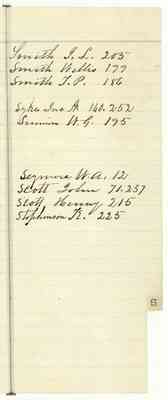 Smith J. L. 205
Smith Willis 177
Smith T. P. 186
Sykes Jno. A 140.252
Simmins W. G. 195
Seymore W. A. 12
Scott John 71.257
Scott Henry 215
Stephenson R. 225
S